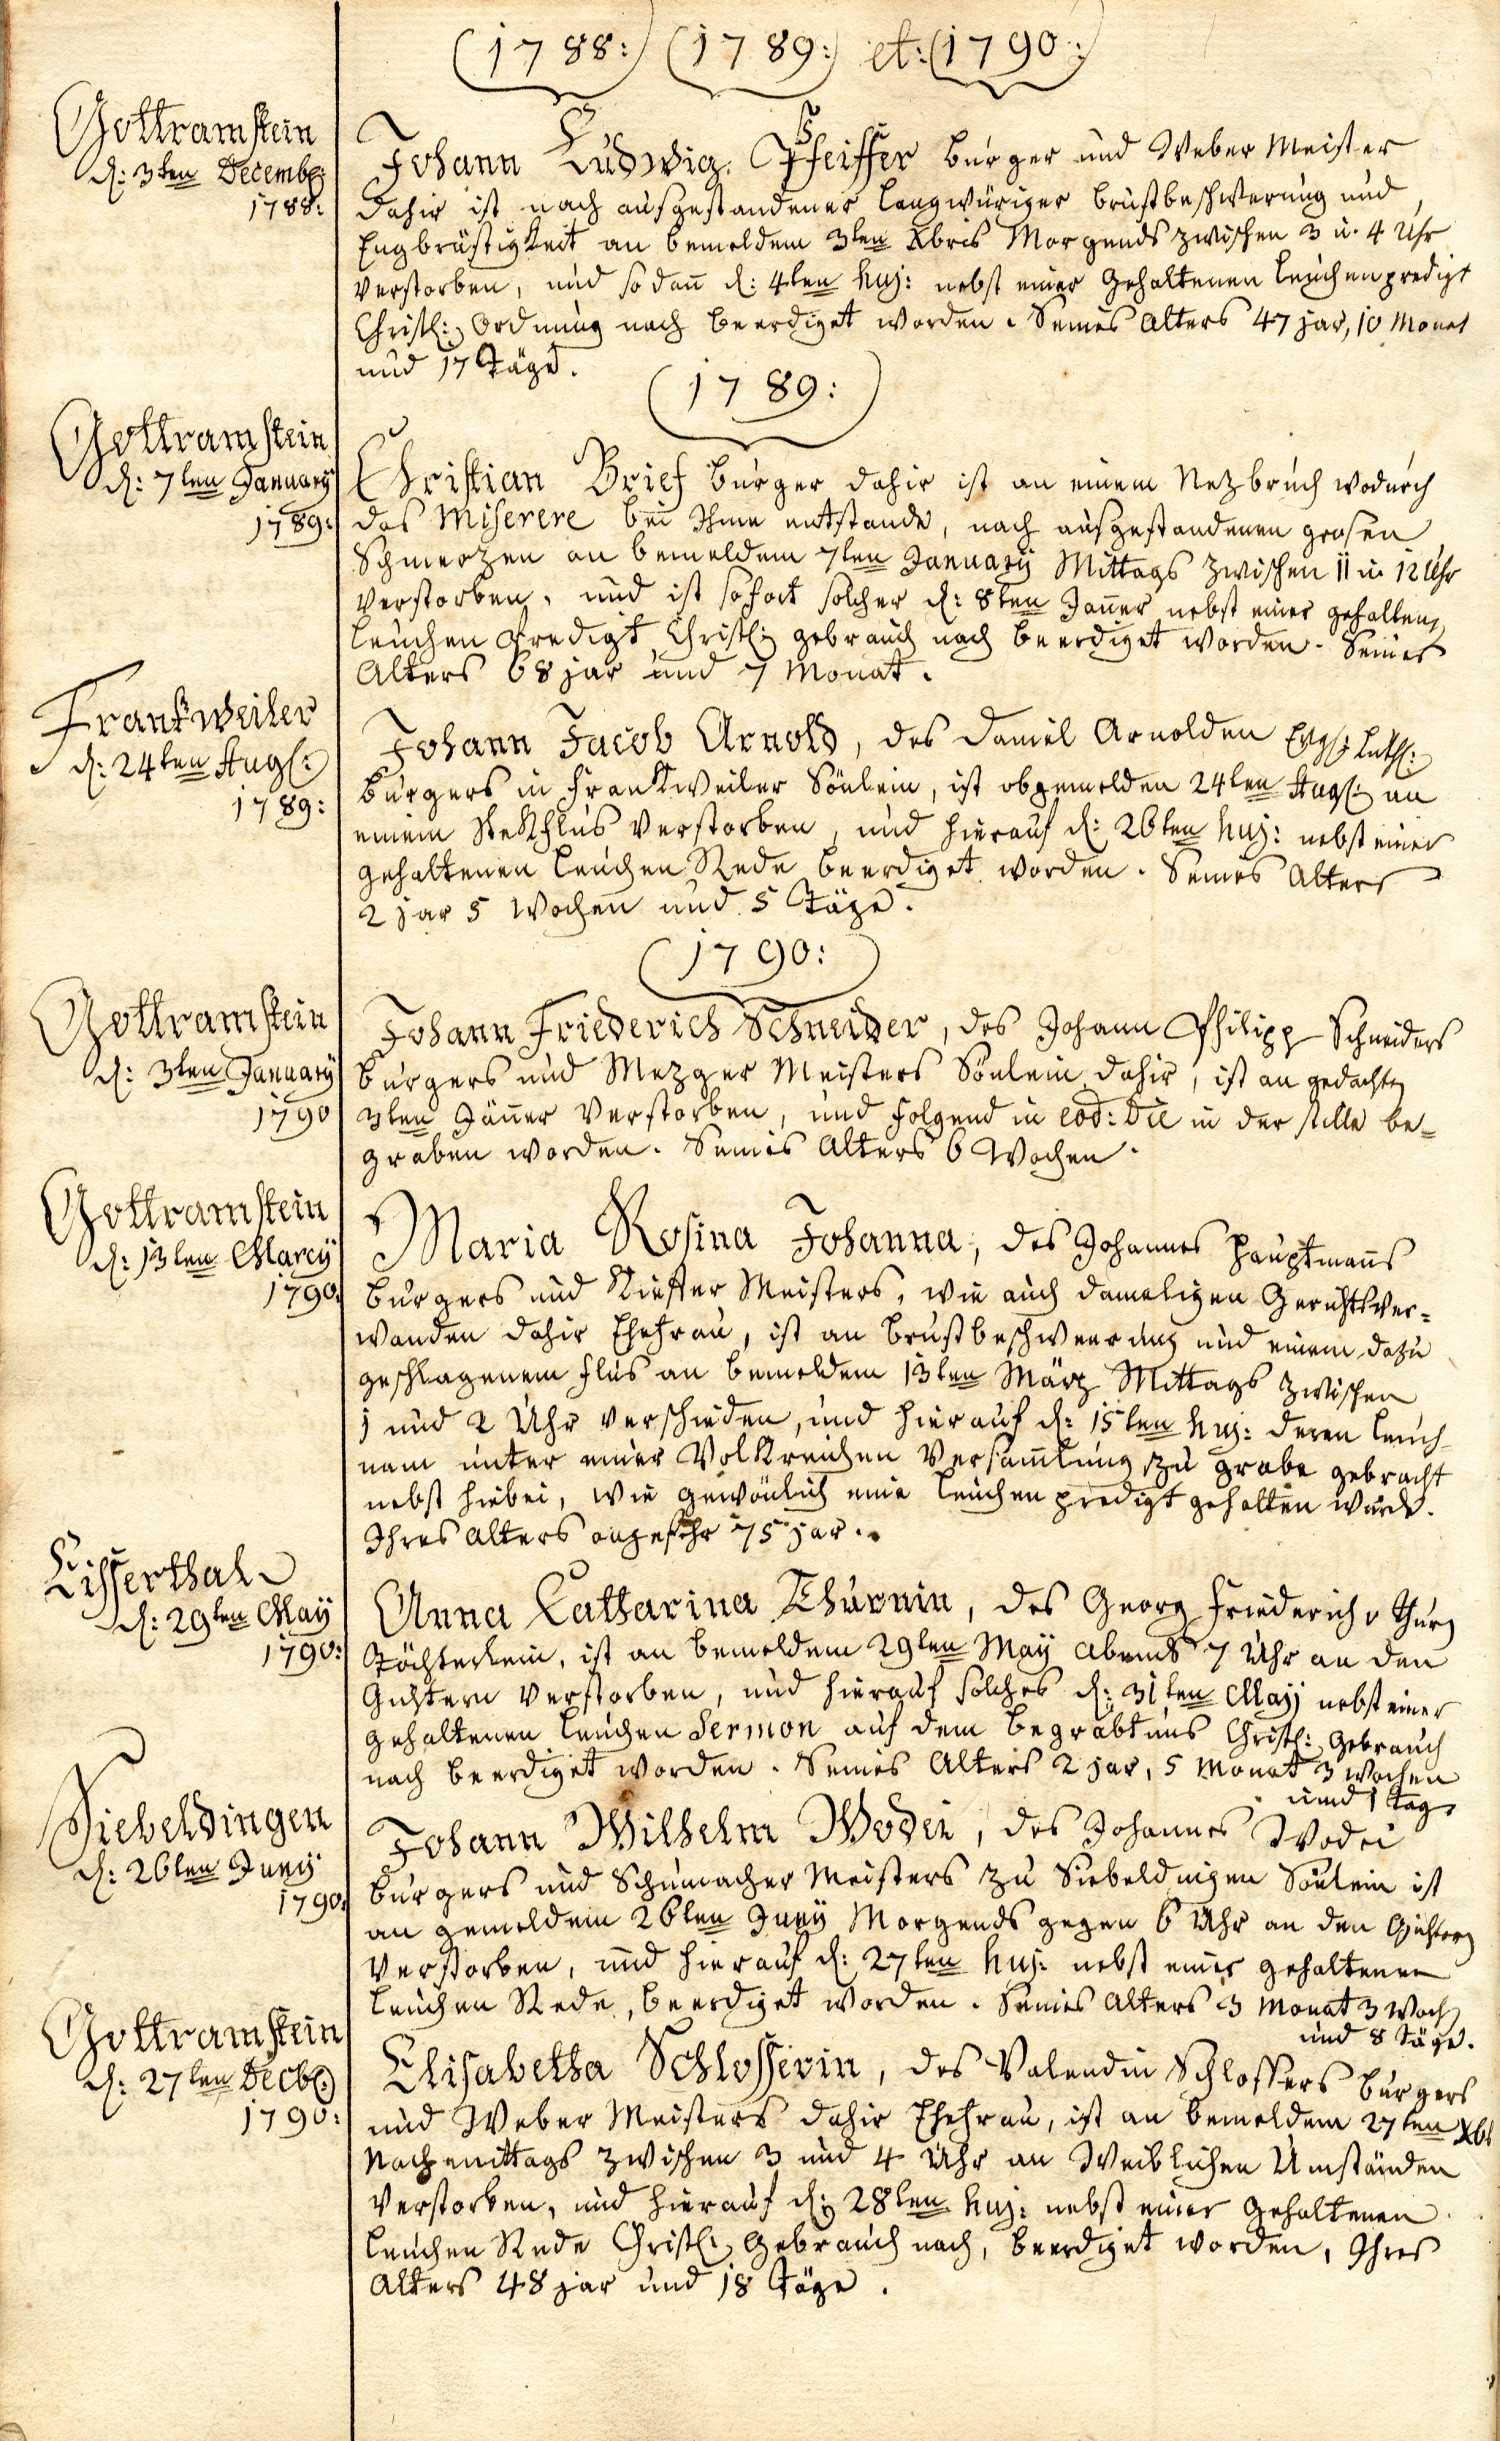 (1788:) (1789:) et: (1790:)
Gottramstein
d: 3ten Decemb:
1788:
Johann Ludwig Pfeiffer burger und Weber Meister
dahir ist nach ausgestandener langwüriger brustbeschwerung und
Engbrüstigkeit an bemeldem 3ten Xbris Morgends zwischen 3 u. 4 Uhr
verstorben, und so dan̄ d: 4ten huj: nebst einer gehaltenen leuchenpredigt
Christl: Ordnung nach beerdiget worden. Seines alters 47 jar, 10 Monat
und 17 Täge.
(1789:)
Gottramstein
d: 7ten January
1789:
Christian Brief burger dahir ist an einem Nezbruch wodurch
das Miserere bei Ihme entstande, nach ausgestandenen grosen
Schmerzen an bemeldem 7ten January Mittags zwischen 11 u. 12 Uhr
verstorben, und ist sofort solcher d: 8ten Jan̄er nebst einer gehalten
leuchen Predigt Christl: gebrauch nach beerdiget worden. Seines
Alters 68 jar und 7 Monat.
Frankweiler
d: 24ten Augl:
1789:
Johann Jacob Arnold, des Daniel Arnolden Evgl: Luth:
burgers in Frankweiler Sönlein, ist obgemelden 24ten Augl: an
einem Stekhflus verstorben, und hierauf d: 26ten huj: nebst einer
gehaltenen leuchen Rede beerdiget worden. Seines Alters
2 jar 5 Wochen und 5 Täge.
(1790:)
Gottramstein
d: 3ten January
1790
Johann Friederich Schneider, des Johann Philipp Schneiders
burgers und Mezger Meisters Sönlein dahir, ist an gedachten
3ten Jän̄er verstorben, und folgend in eod: die in der stille be=
graben worden. Seines Alters 6 Wochen.
Gottramstein
d: 13ten Marcy
1790.
Maria Rosina Johanna, des Johannes Hauptman̄s
burgers und Kieffer Meisters, wie auch damaligen Gerichtsver=
wanden dahir Ehefrau, ist an brustbeschweerung und einem dazu
geschlagenem flus an bemeldem 13ten März Mittags zwischen
1 und 2 Uhr verschieden, und hierauf d: 15ten huj: deren leuch=
nam unter einer Volkreichen Versam̄lung zu grabe gebracht
nebst hiebei, wie gewönlich eine leuchenpredigt gehalten wurde.
Ihres alters ongefehr 75 jar.
Eisserthal
d: 29ten May
1790:
Anna Catharina Thurnin, des Georg Friederich Thurn
Töchterlein, ist an bemeldem 29ten May abends 7 Uhr an den
Gichtern verstorben, und hierauf solches d: 31ten May nebst einer
gehaltenen leuchen Sermon auf dem begräbtnus Christl: gebrauch
nach beerdiget worden. Seines Alters 2 jar, 5 Monat 3 Wochen
und 1 tag.
Siebeldingen
d: 26ten Juny
1790.
Johann Wilhelm Wodei, des Johannes Wodei
burgers und Schumacher Meisters zu Siebeldingen Sönlein ist
an gemeldem 26ten Juny Morgends gegen 6 Uhr an den Gichtern
verstorben, und hierauf d: 27ten huj: nebst einer gehaltenen
leuchen Rede, beerdiget worden. Seines alters 3 Monat 3 Woch
und 8 Täge.
Gottramstein
d: 27ten Decb:
1790:
Elisabetha Schlosserin, des Valendin Schlossers burgers
und Weber Meisters dahir Ehefrau, ist an bemeldem 27ten Xb
Nachmittags zwischen 3 und 4 Uhr an Weiblichen Umständen
verstorben, und hierauf d: 28ten huj: nebst einer gehaltenen
leuchen Rede Christl: gebrauch nach, beerdiget worden, Ihres
Alters 48 jar und 18 Täge.